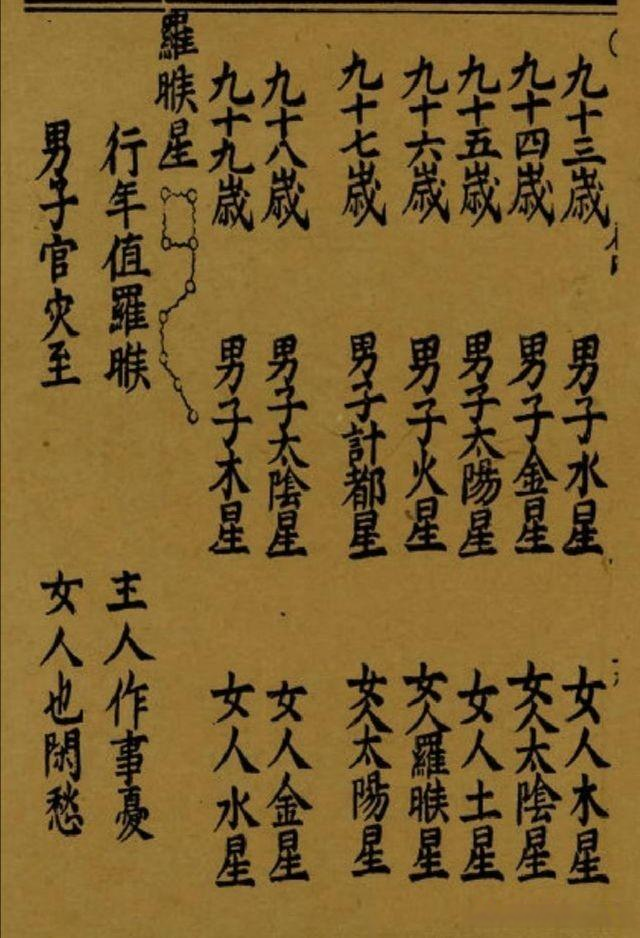 九十三嵗 男子水星 女人木星
九十四嵗 男子金星 女人太陰星
九十五嵗 男子太陽星 女人土星
九十六嵗 男子火星 女人羅睺星
九十七嵗 男子計都星 女人太陽星
九十八嵗 男子太陰星 女人金星
九十九嵗 男子木星 女人水星
羅睺星
行年值羅睺 主人作事憂
男子官灾至 女人也閑愁